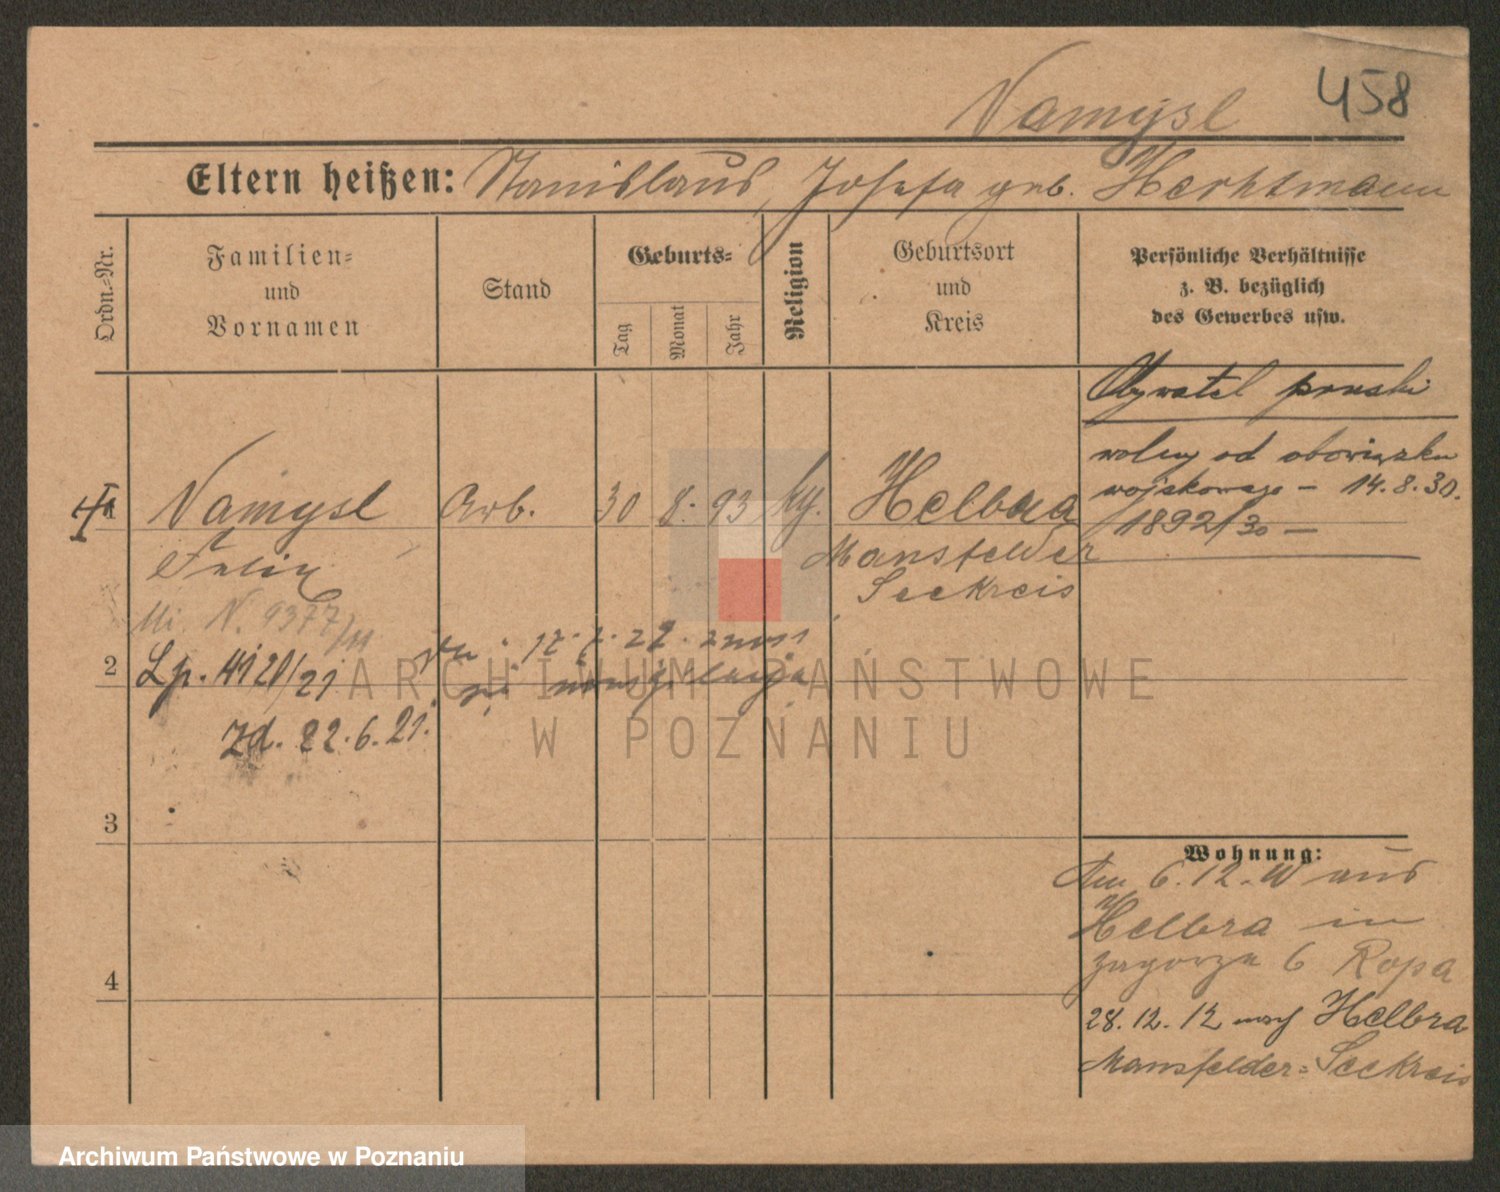 458
Namysl
Eltern heißen: Stanislaus, Josefa geb. Herktmann
Ordn.-Nr.
Familien-
und
Vornamen
Stand
Geburts-
Tag
Monat
Jahr
Religion
Geburtsort
und
Kreis
Persönliche Verhältnisse
z. B. bezüglich
des Gewerbes usw.
Obywatel pruski
wolny od obowiązku
wojskowego – 14.8.30.
1892/30 –
1
Namysl Arb. 30 8. 93 Helbra
Felix Mansfelder
Seekreis
N. 9377/11
2
Lp. 4120/21
Zd. 22.6.21.
3
4
Wohnung:
6.12. aus
Helbra in
Zagorze 6 Ropa
28.12.12 nach Helbra
Mansfelder-Seekreis
ARCHIWUM PAŃSTWOWE
W POZNANIU
Archiwum Państwowe w Poznaniu